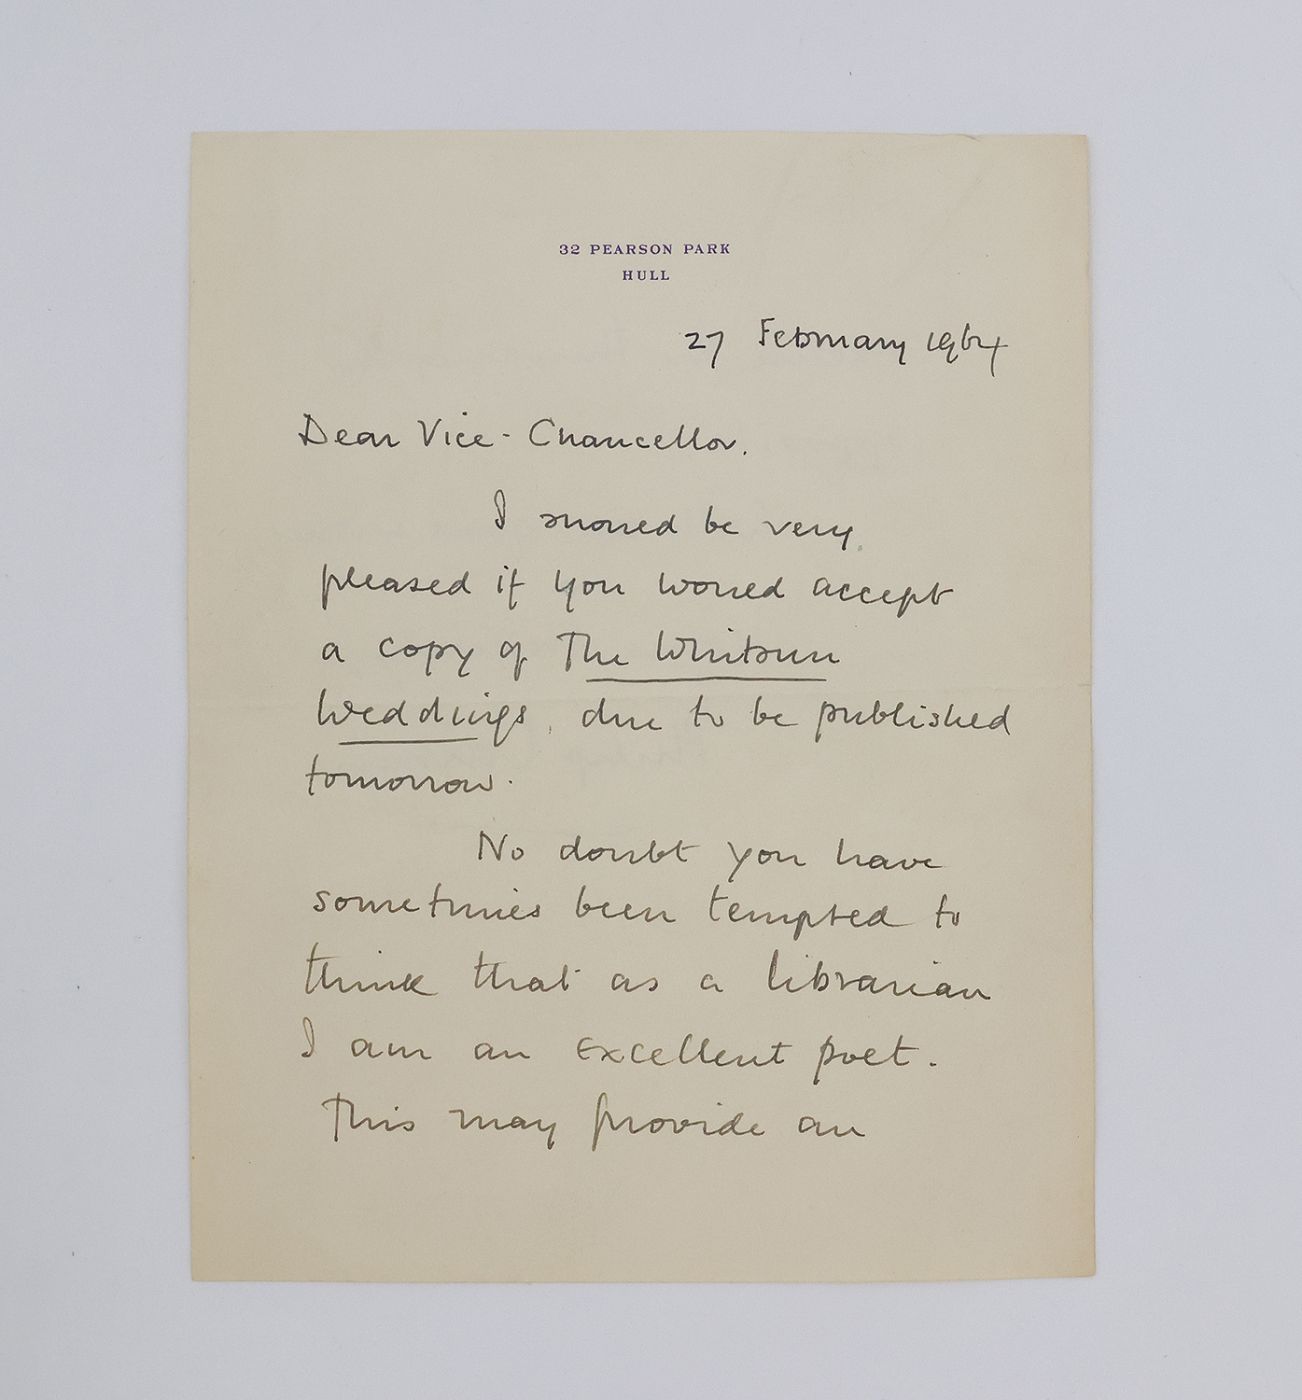 32 PEARSON PARK
HULL
27 February 1964
Dear Vice-Chancellor,
I should be very
pleased if you would accept
a copy of The Whitsun
Weddings, due to be published
tomorrow.
No doubt you have
sometimes been tempted to
think that as a librarian
I am an excellent poet.
This may provide an